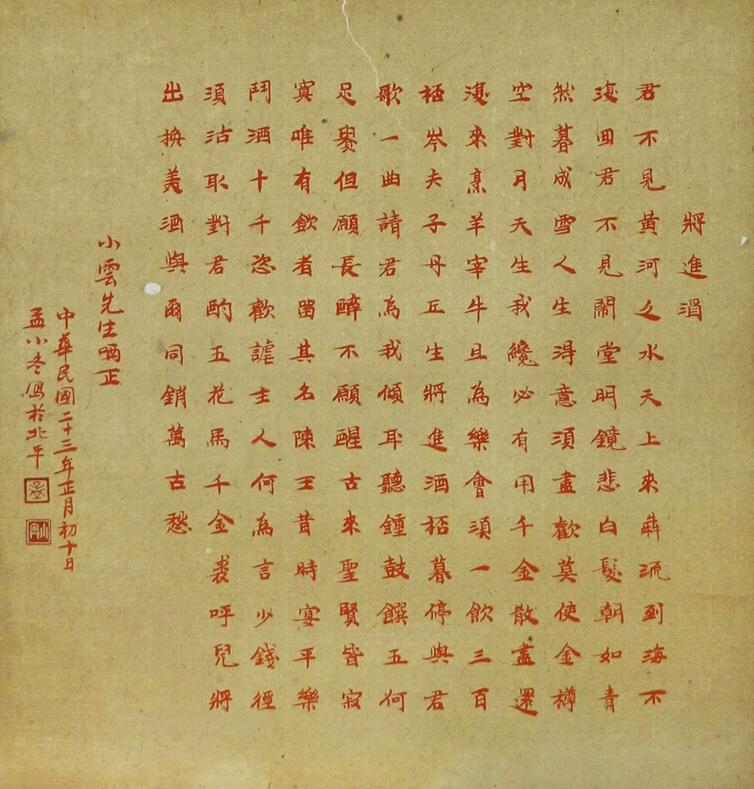 將進酒
君不見黃河之水天上來犇流到海不
復回君不見堂明鏡悲白髮朝如青
絲暮成雪人生得意須盡歡莫使金樽
空對月天生我纔必有用千金散盡還
復來烹羊宰牛且為樂會須一飲三百
桮岑夫子丹丘生將進酒桮暮停與君
歌一曲請君為我傾耳聽鍾鼓饌玉何
足貴但願長醉不願醒古來聖賢皆寂
寞唯有飲者留其名陳王昔時宴平樂
鬥酒十千恣歡謔主人何為言少錢徑
須沽取對君酌五花馬千金裘呼兒將
出換美酒與爾同銷萬古愁
小雲先生哂正
中華民國二十三年正月初十日
孟小冬寫於北平